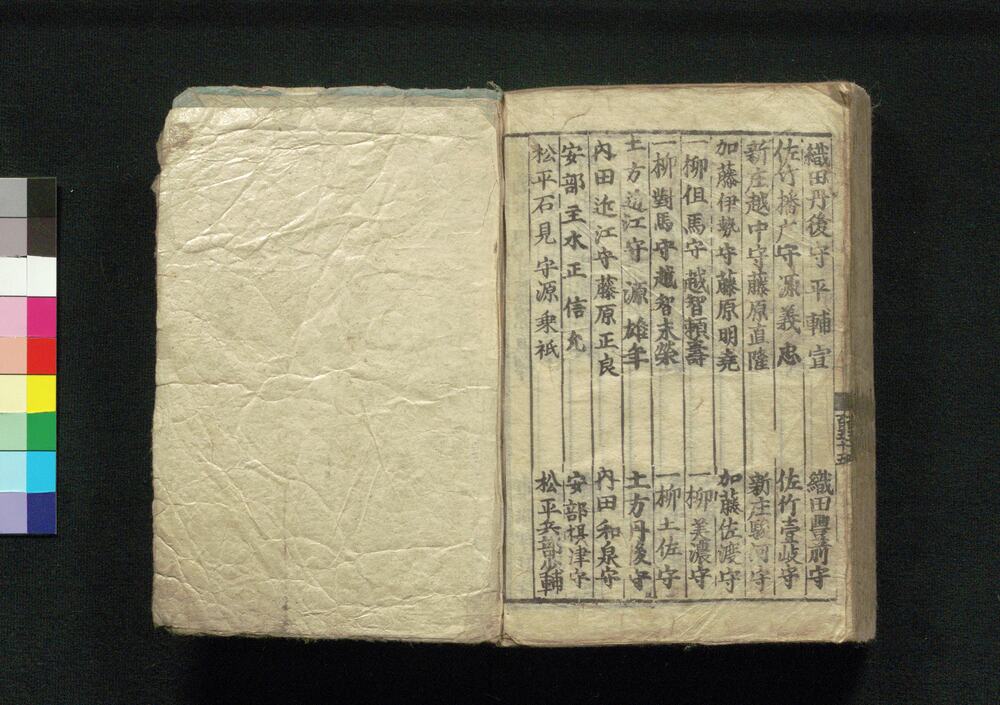 織田丹後守平輔宜 織田豊前守
佐竹播广守源義忠 佐竹壹岐守
新庄越中守藤原直隆 新庄駿河守
加藤伊勢守藤原明堯 加藤佐渡守
一柳但馬守越智頼壽 一柳美濃守
一柳對馬守越智末榮 一柳土佐守
土方近江守源雄年 土方丹後守
内田近江守藤原正良 内田和泉守
安部主水正信允 安部摂津守
松平石見守源乗祇 松平兵部少輔